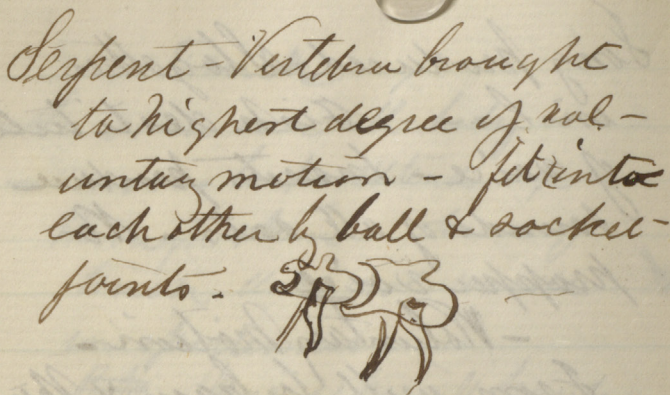 Serpent - Vertebra brought
to highest degree of vol-
untary motion - fit into
each other by ball & socket-
joints.